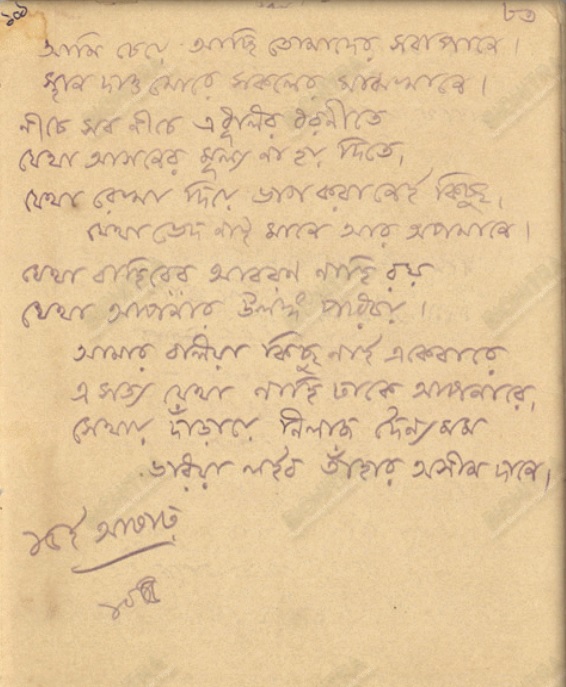 ১০৬ ৮৩
আমি চেয়ে আছি তোমাদের সবাপানে।
স্থান দাও মোরে সকলের মাঝখানে।
নীচে সব নীচে এ ধূলির ধরণীতে
যেথা আসনের মূল্য না হয় দিতে,
যেথা রেখা দিয়ে ভাগ করা নেই কিছু,
যেথা ভেদ নাই মানে আর অপমানে।
যেথা বাহিরের আবরণ নাহি রয়
যেথা আপনার উলঙ্গ পরিচয়।
আমার বলিয়া কিছু নাই একেবারে
এ সত্য যেথা নাহি ঢাকে আপনারে,
সেথায় দাঁড়ায়ে নিলাজ দৈন্য মম
ভরিয়া লইব তাঁহার পরম দানে।
১৫ই আষাঢ়